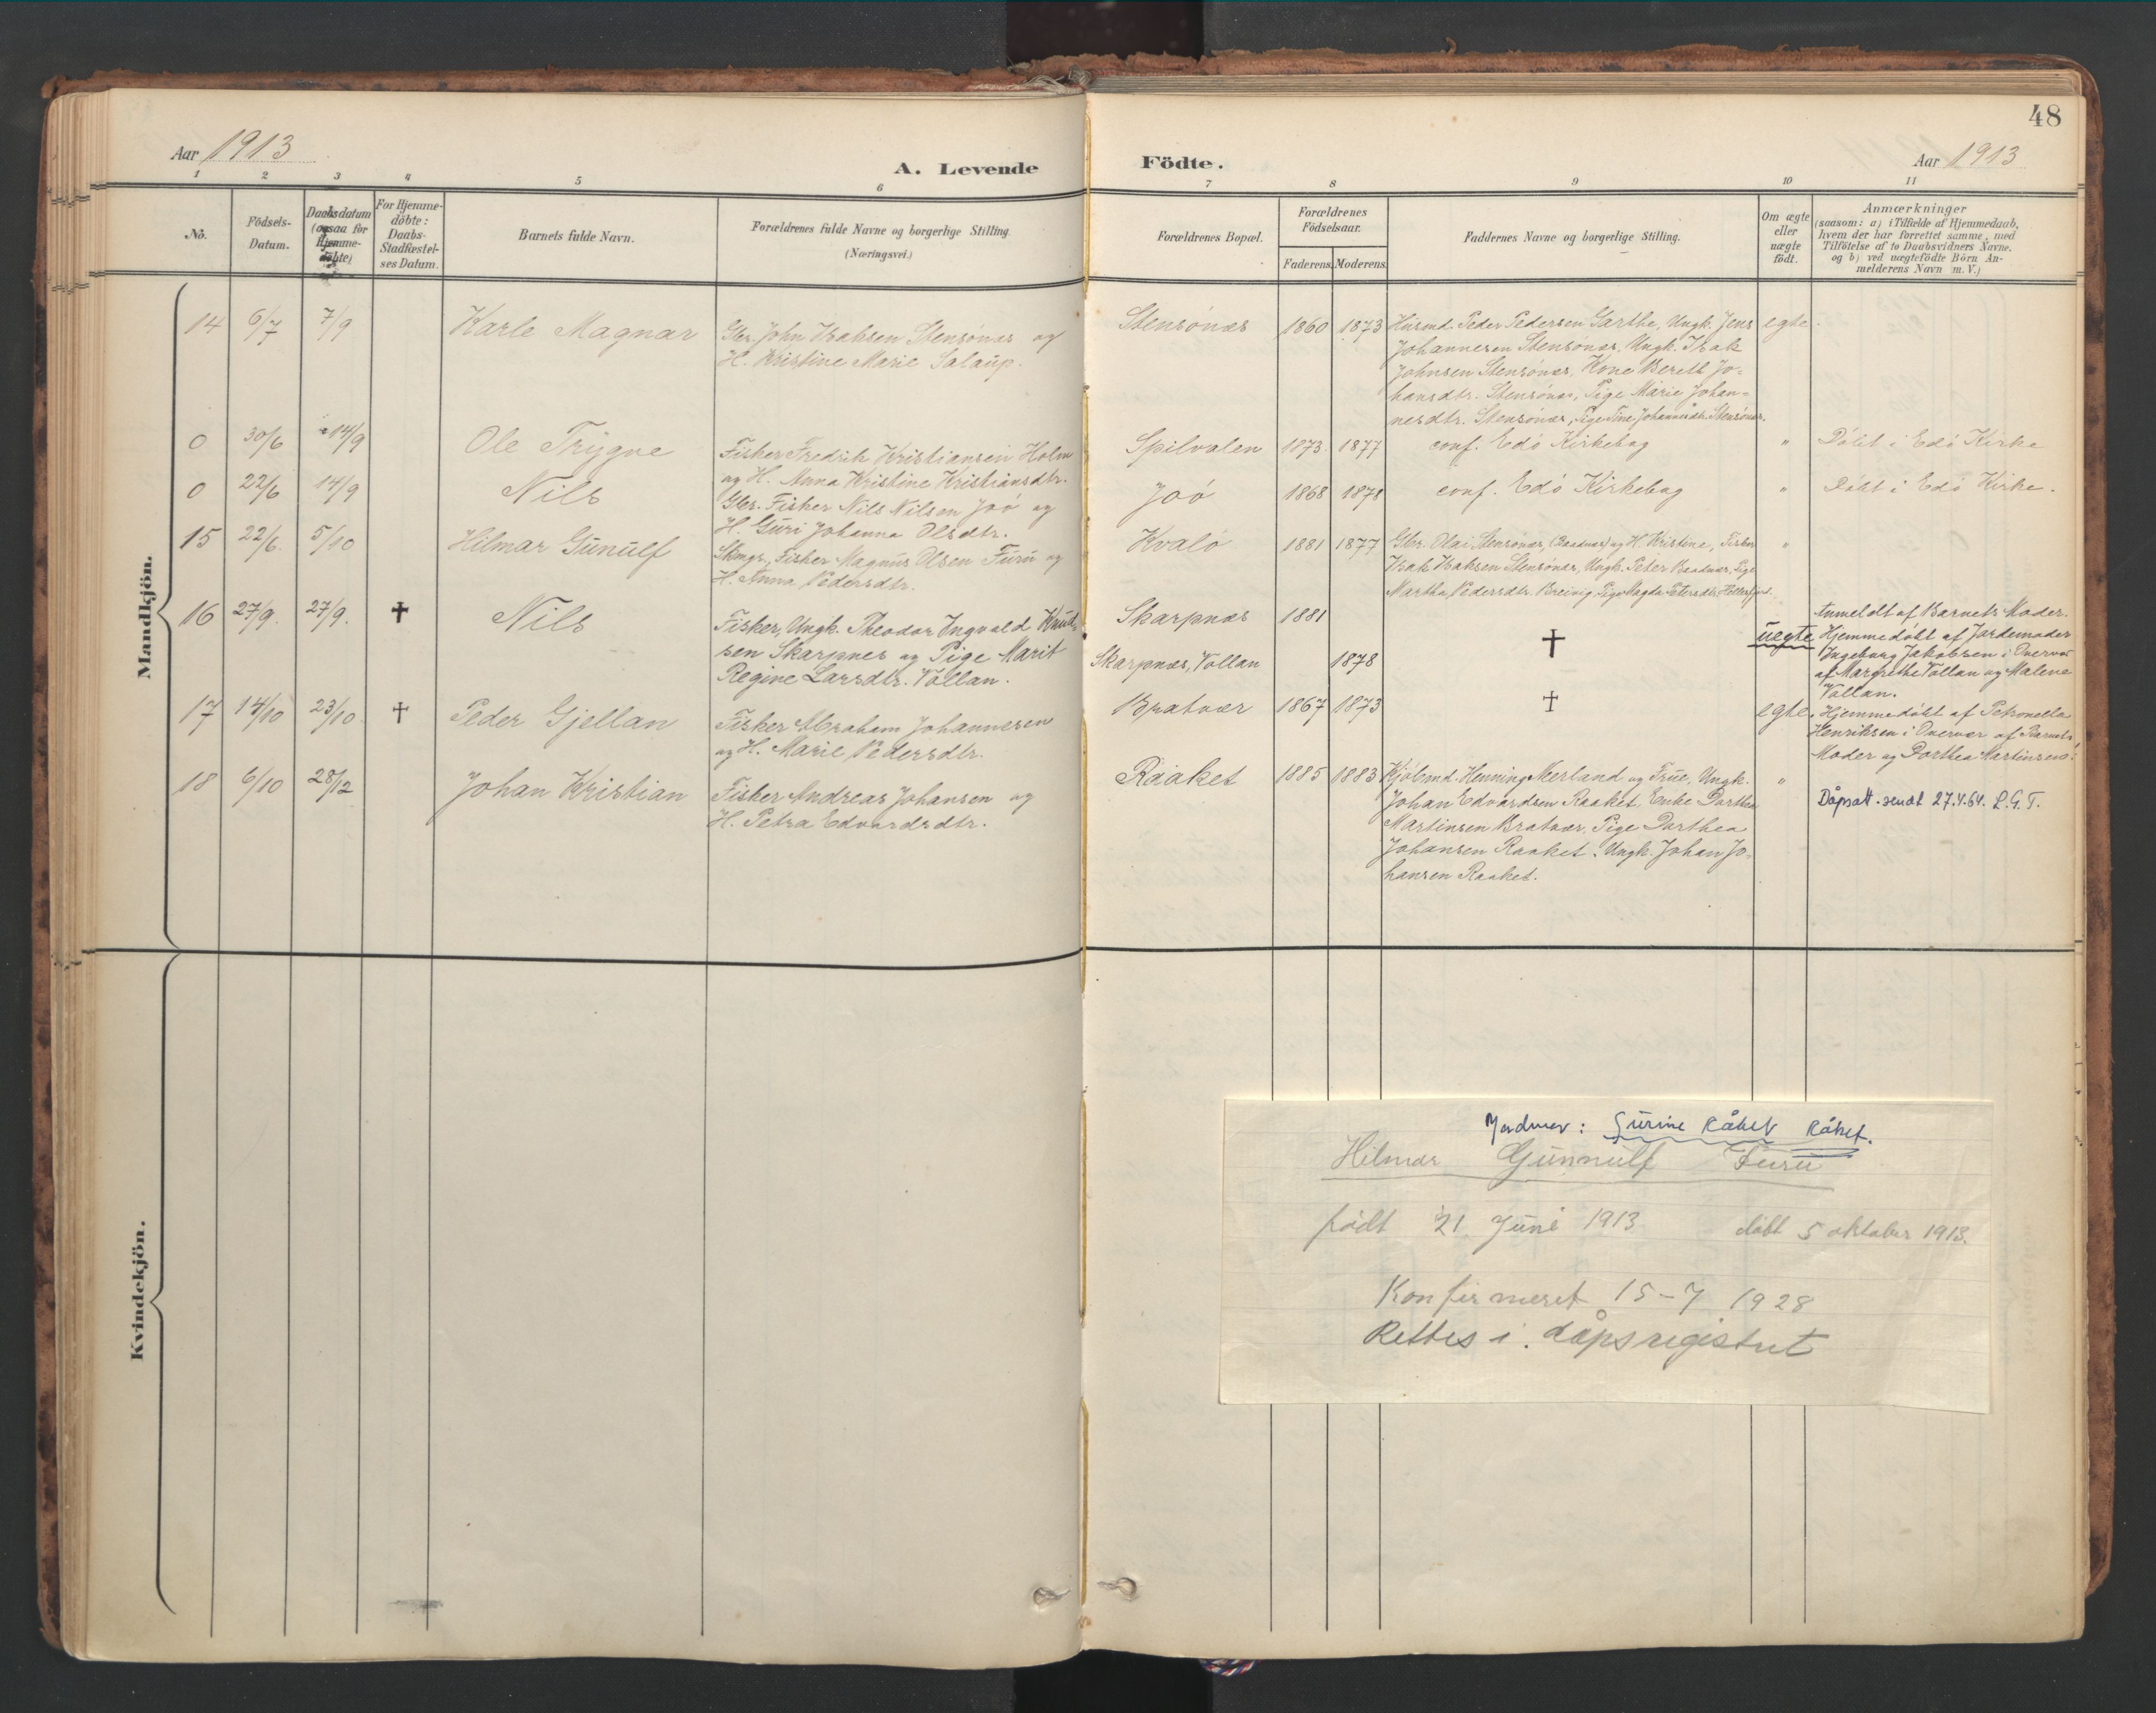 48
Aar 1913
A. Levende Födte.
Aar 1913
1 2 3 4 5 6 7 8 9 10 11
No.
Födsels-
Datum.
Daabsdatum
(ogsaa for
Hjemme-
döbte)
For Hjemme-
döbte:
Daabs-
Stadfæstel-
ses Datum.
Barnets fulde Navn.
Forældrenes fulde Navne og borgerlige Stilling.
(Næringsvei.)
Forældrenes Bopæl.
Forældrenes
Födselsaar.
Faderens. Moderens.
Faddernes Navne og borgerlige Stilling.
Om ægte
eller
uægte
födt.
Anmærkninger
(saasom: a) i Tilfælde af Hjemmedaab,
hvem der har forrettet samme, med
Tilföielse af to Daabsvidners Navne.
og b) ved uægtefödte Börn An-
melderens Navn m.V.)
Mandkjön.
14 6/7 7/9 Karle Magnar
Gbr. John Isaksen Stensönæs og
H. Kristine Marie Salaup.
Stensönæs 1860 1873
Husmd. Peder Pedersen Garthe, Ungk. Jens
Johannesen Stensönæs, Ungk. Isak
Johnsen Stensönæs, Kone Berett Jo-
hansdtr. Stensönæs, Pige Marie Johan-
nesdtr. Stensönæs, Pige Tine Johannesdtr. Stensönæs.
egte
0 30/6 14/9 Ole Trygve
Fisker Fredrik Kristiansen Holm
og H. Anna Kristine Kristiansdtr.
Spilvalen 1873 1877 conf. Edö Kirkebog " Döbt i Edö Kirke
0 22/6 14/9 Nils
Gbr. Fisker Nils Nilsen Joö og
H. Guri Johanna Olsdtr.
Joö 1868 1878 conf. Edö Kirkebog " Döbt i Edö Kirke.
15 22/6 5/10 Hilmar Gunulf
Fisker Magnus Olsen Furu og
H. Anna Pedersdtr.
Kvalö 1881 1877
Gbr. Olai Stensönæs, og H. Kristine, Fisker
Isak Isaksen Stensönæs, Ungk. Peter Pige
Martha Pedersdtr. Breivig, Pige Magda Petersdtr.
"
16 27/9. 27/9. ✝ Nils
Fisker, Ungk. Theodor Ingvald Knud-
sen Skarpnes og Pige Marit
Regine Larsdtr. Vollan.
Skarpnæs 1881
Skarpnæs, Vollan 1878
✝
uegte
Anmeldt af Barnets Moder.
Hjemmedöbt af Jordemoder
Ingeborg Jakobsen i
af Margrethe Vollan og Malene
Vollan.
17 14/10 23/10 ✝ Peder Gjellan
Fisker Abraham Johannesen
og H. Marie Pedersdtr.
Bratvær 1867 1873
✝
egte.
Hjemmedöbt af Petronella
Henriksen i af Barnets
Moder og Dorthea Martinsen.
18 6/10 28/12 Johan Kristian
Fisker Andreas Johansen og
H. Petra Edvardsdtr.
Raaket 1885 1883
Kjöbmd. Henning Neerland og Frue, Ungk.
Johan Edvardsen Raaket, Enke Dorthea
Martinsen Bratvær, Pige Dorthea
Johansen Raaket, Ungk. Johan Jo-
hansen Raaket.
"
Dåpsatt. sendt 27.4.64. L.G.T.
Kvindekjön.
Jordmor: Gurine Råket Råket.
Hilmar Gunnulf Furu
födt 21. Juni 1913 döbt 5 oktober 1913.
Konfirmeret 15-7 1928
Rettes i dåpsregistret